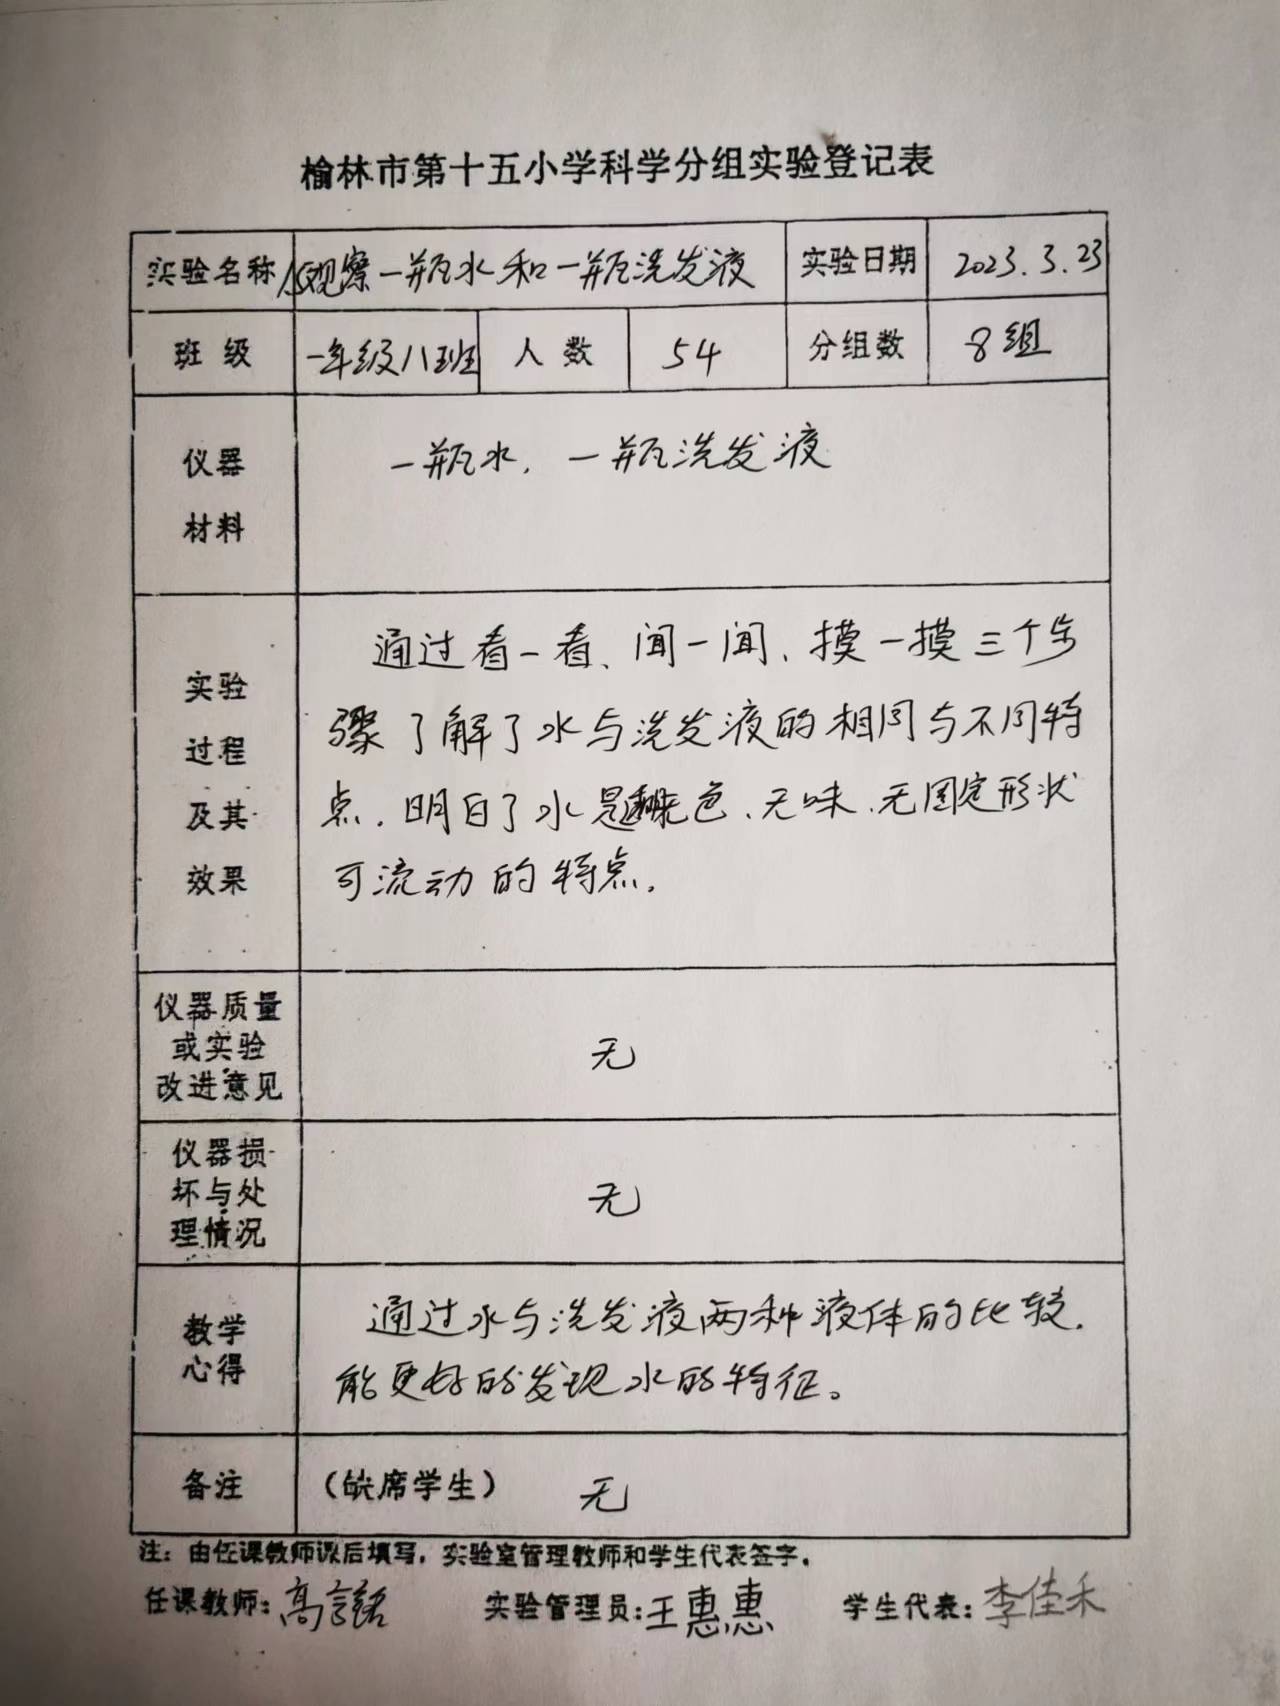 榆林市第十五小学科学分组实验登记表
实验名称 观察一瓶水和一瓶洗发液 实验日期 2023.3.23
班级 一年级八班 人数 54 分组数 8组
仪器
材料
一瓶水，一瓶洗发液
实验
过程
及其
效果
通过看一看、闻一闻、摸一摸三个步
骤了解了水与洗发液的相同与不同特
点，明白了水是无色、无味、无固定形状
可流动的特点。
仪器质量
或实验
改进意见
无
仪器损
坏与处
理情况
无
教学
心得
通过水与洗发液两种液体的比较，
能更好的发现水的特征。
备注 （缺席学生） 无
注：由任课教师课后填写，实验室管理教师和学生代表签字。
任课教师：高 实验管理员：王惠惠 学生代表：李佳禾